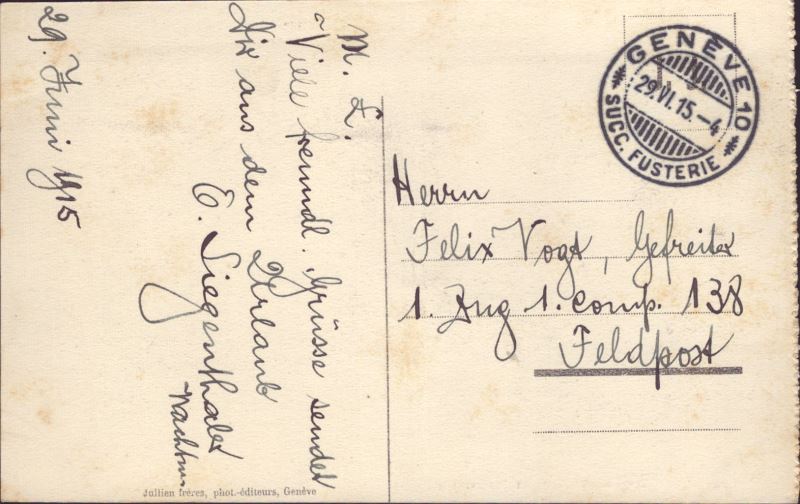 29. Juni 1915
M. L.
Viele freundl. Grüsse sendet
Dir aus dem Urlaub
E. Siegenthaler
Wachtm.
GENÈVE 10
29.VI.15.–4
SUCC. FUSTERIE
Herrn
Felix Vogt, Gefreiter
1. Zug 1. Comp. 138
Feldpost
Jullien frères, phot.-éditeurs, Genève